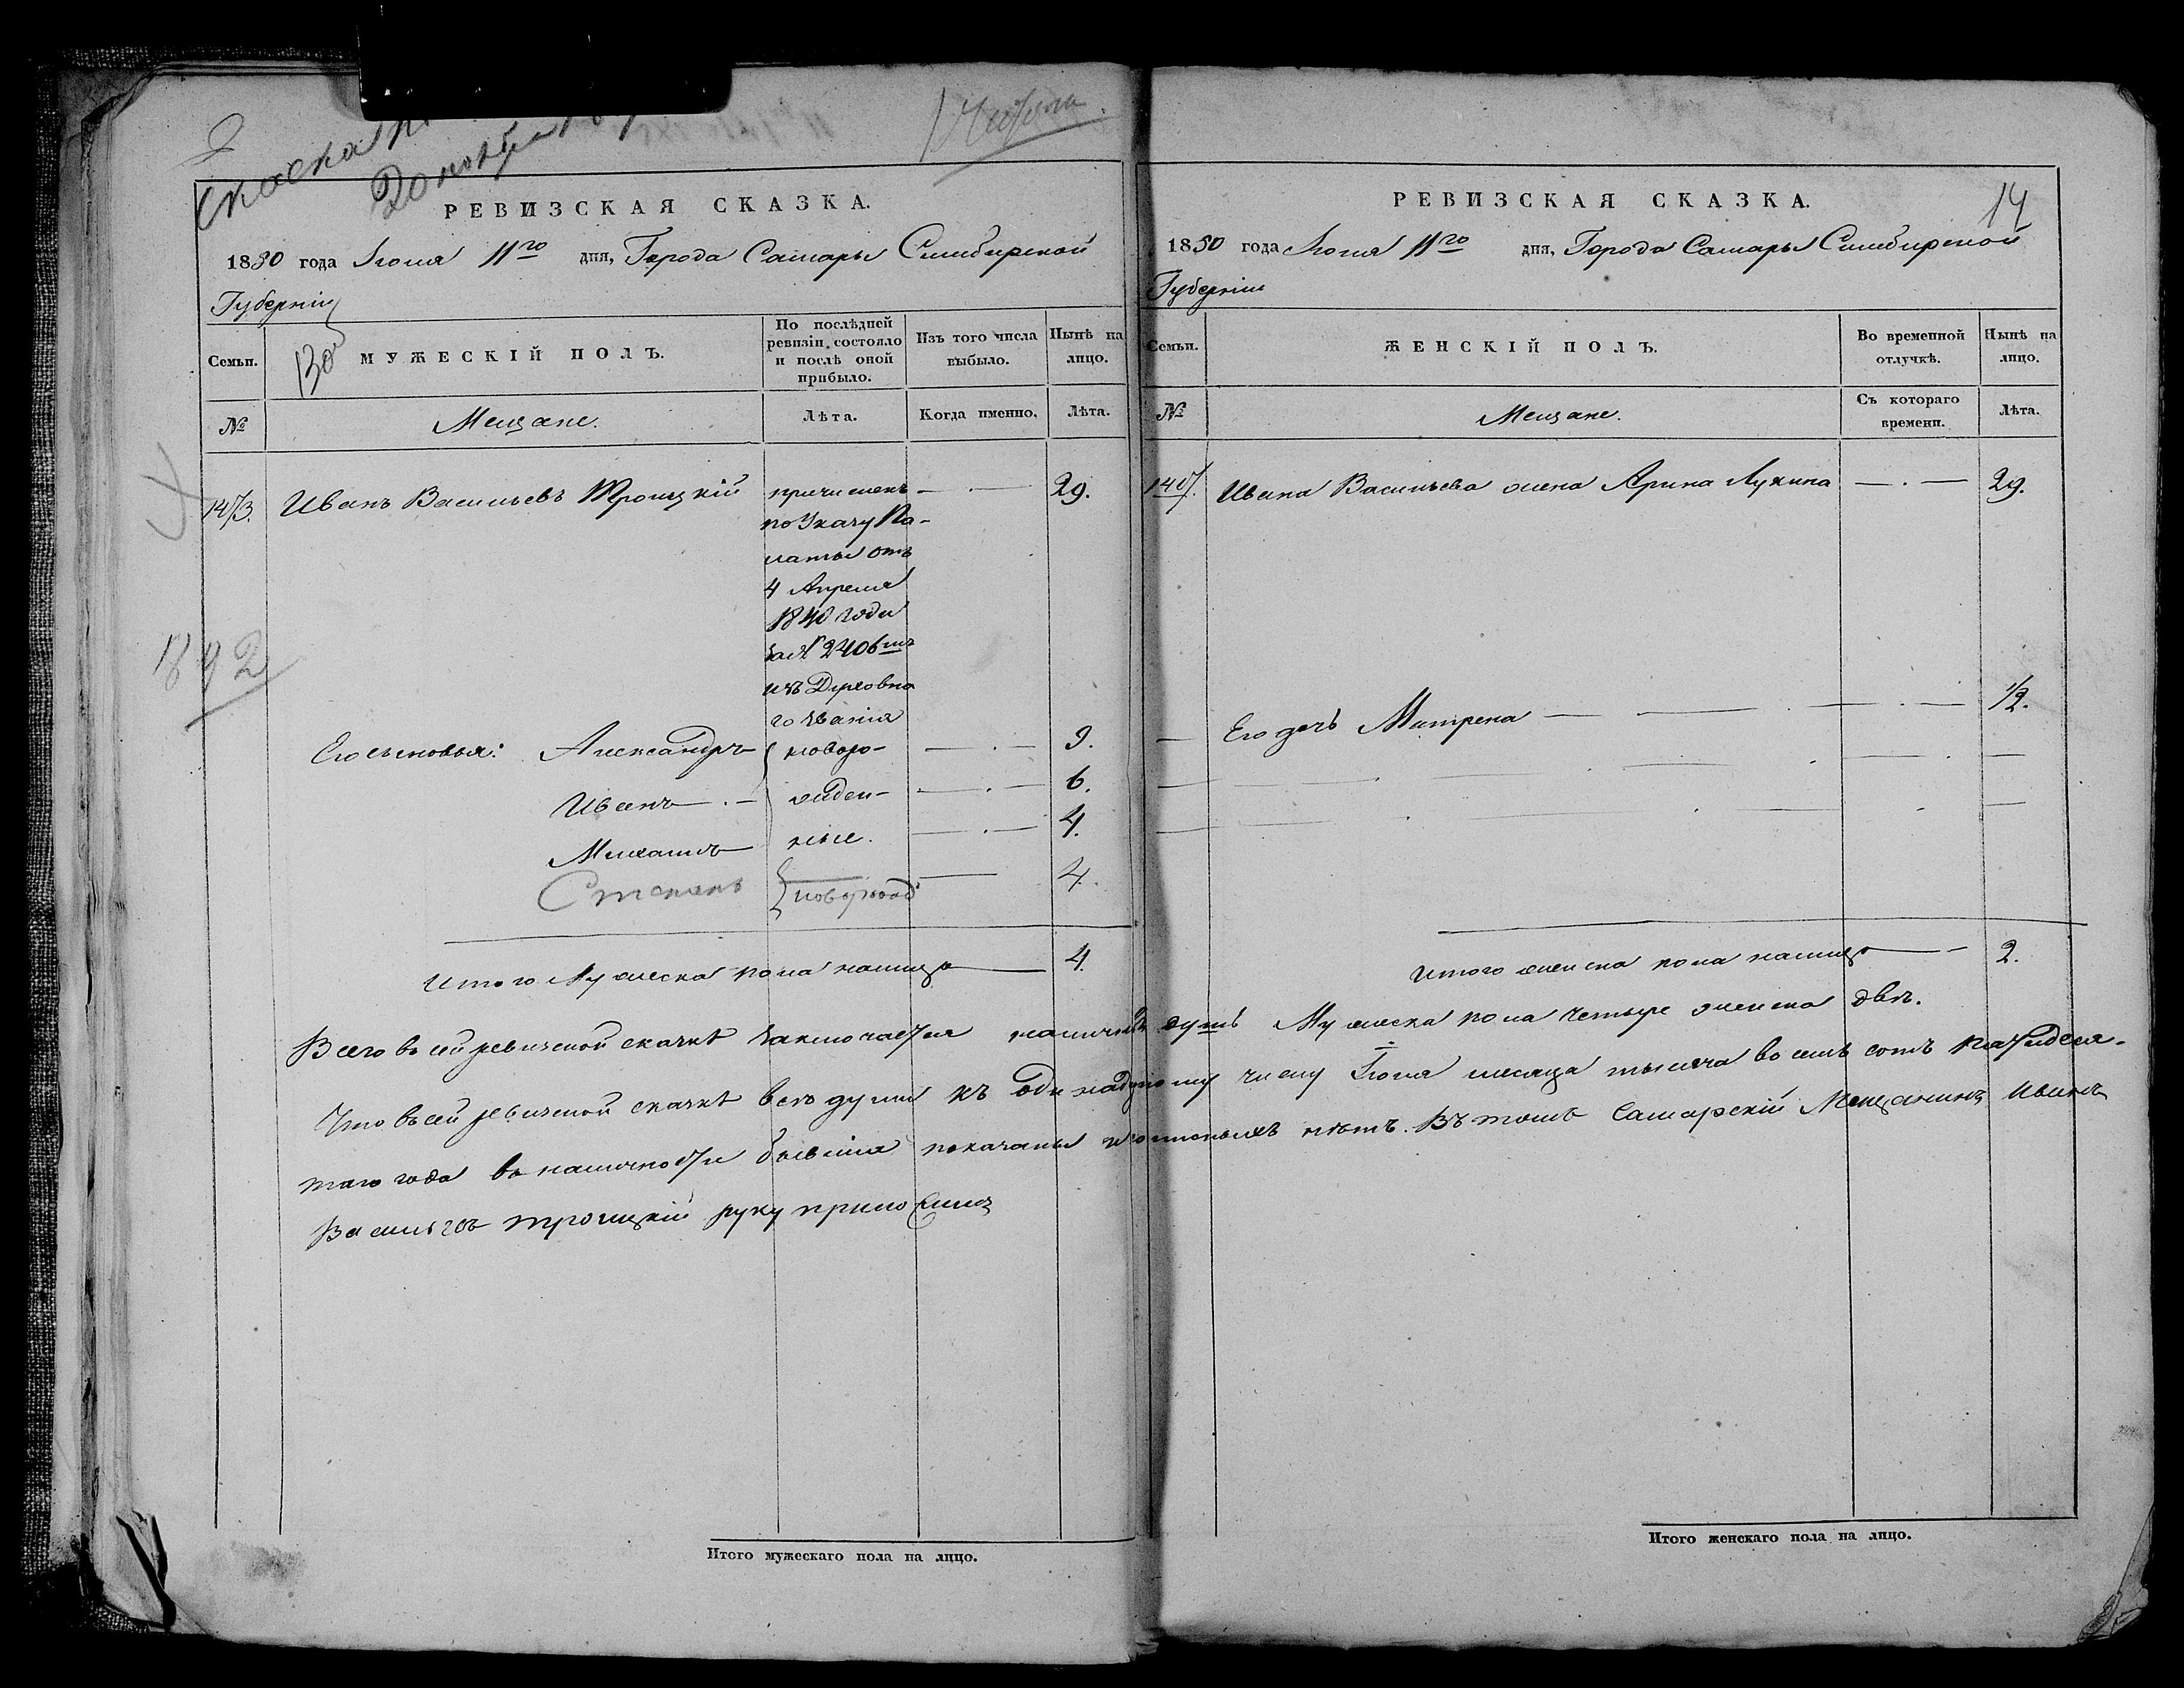 Скаска
14
РЕВИЗСКАЯ СКАЗКА.
1850 года Іюня 11го дня, Города Самары Симбирской
Губерніи
Семьи.
МУЖЕСКІЙ ПОЛЪ.
По послѣдней ревизіи состояло и послѣ оной прибыло.
Изъ того числа выбыло.
Нынѣ на лицо.
№
Мещане.
Лѣта.
Когда именно.
Лѣта.
Иванъ Васильевъ Троицкій
причисленъ
по Указу Па-
латы отъ
4 Апреля
1840 года
за № 2406мъ
изъ Духовна
го званія
29.
1892
Его сыновья: Александръ новоро- 9.
Иванъ жден- 6.
Михаилъ ные. 4.
Степанъ новорожд 4.
Итого Мужеска пола налицо 4.
РЕВИЗСКАЯ СКАЗКА.
1850 года Іюня 11го дня, Города Самары Симбирской
Губерніи
Семьи.
ЖЕНСКІЙ ПОЛЪ.
Во временной отлучкѣ.
Нынѣ на лицо.
№
Мещане.
Съ котораго времени.
Лѣта.
Ивана Васильева жена Арина Лукина 29.
Его дочь Матрена 1/2.
Итого женска пола налицо 2.
Всего въ сей ревизской сказкѣ заключается наличныхъ душъ Мужеска пола четыре женска двѣ.
Что въ сей ревизской сказкѣ все души къ одинадцатому числу Іюня месяца тысяча восемь сотъ пятидеся-
таго года въ наличности бывшія показаны и прописныхъ нѣтъ. Въ томъ Самарскій Мещанинъ Иванъ
Васильевъ Троицкій руку приложилъ
Итого мужескаго пола на лицо.
Итого женскаго пола на лицо.